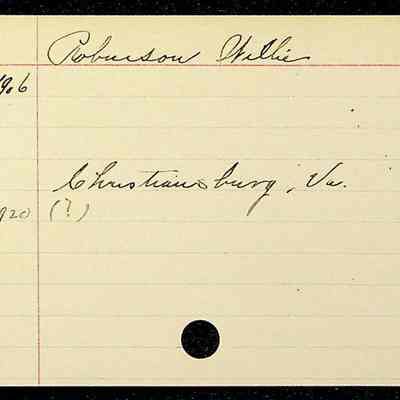 Robinson Willie
1906
Christiansburg, Va.
1920 (?)